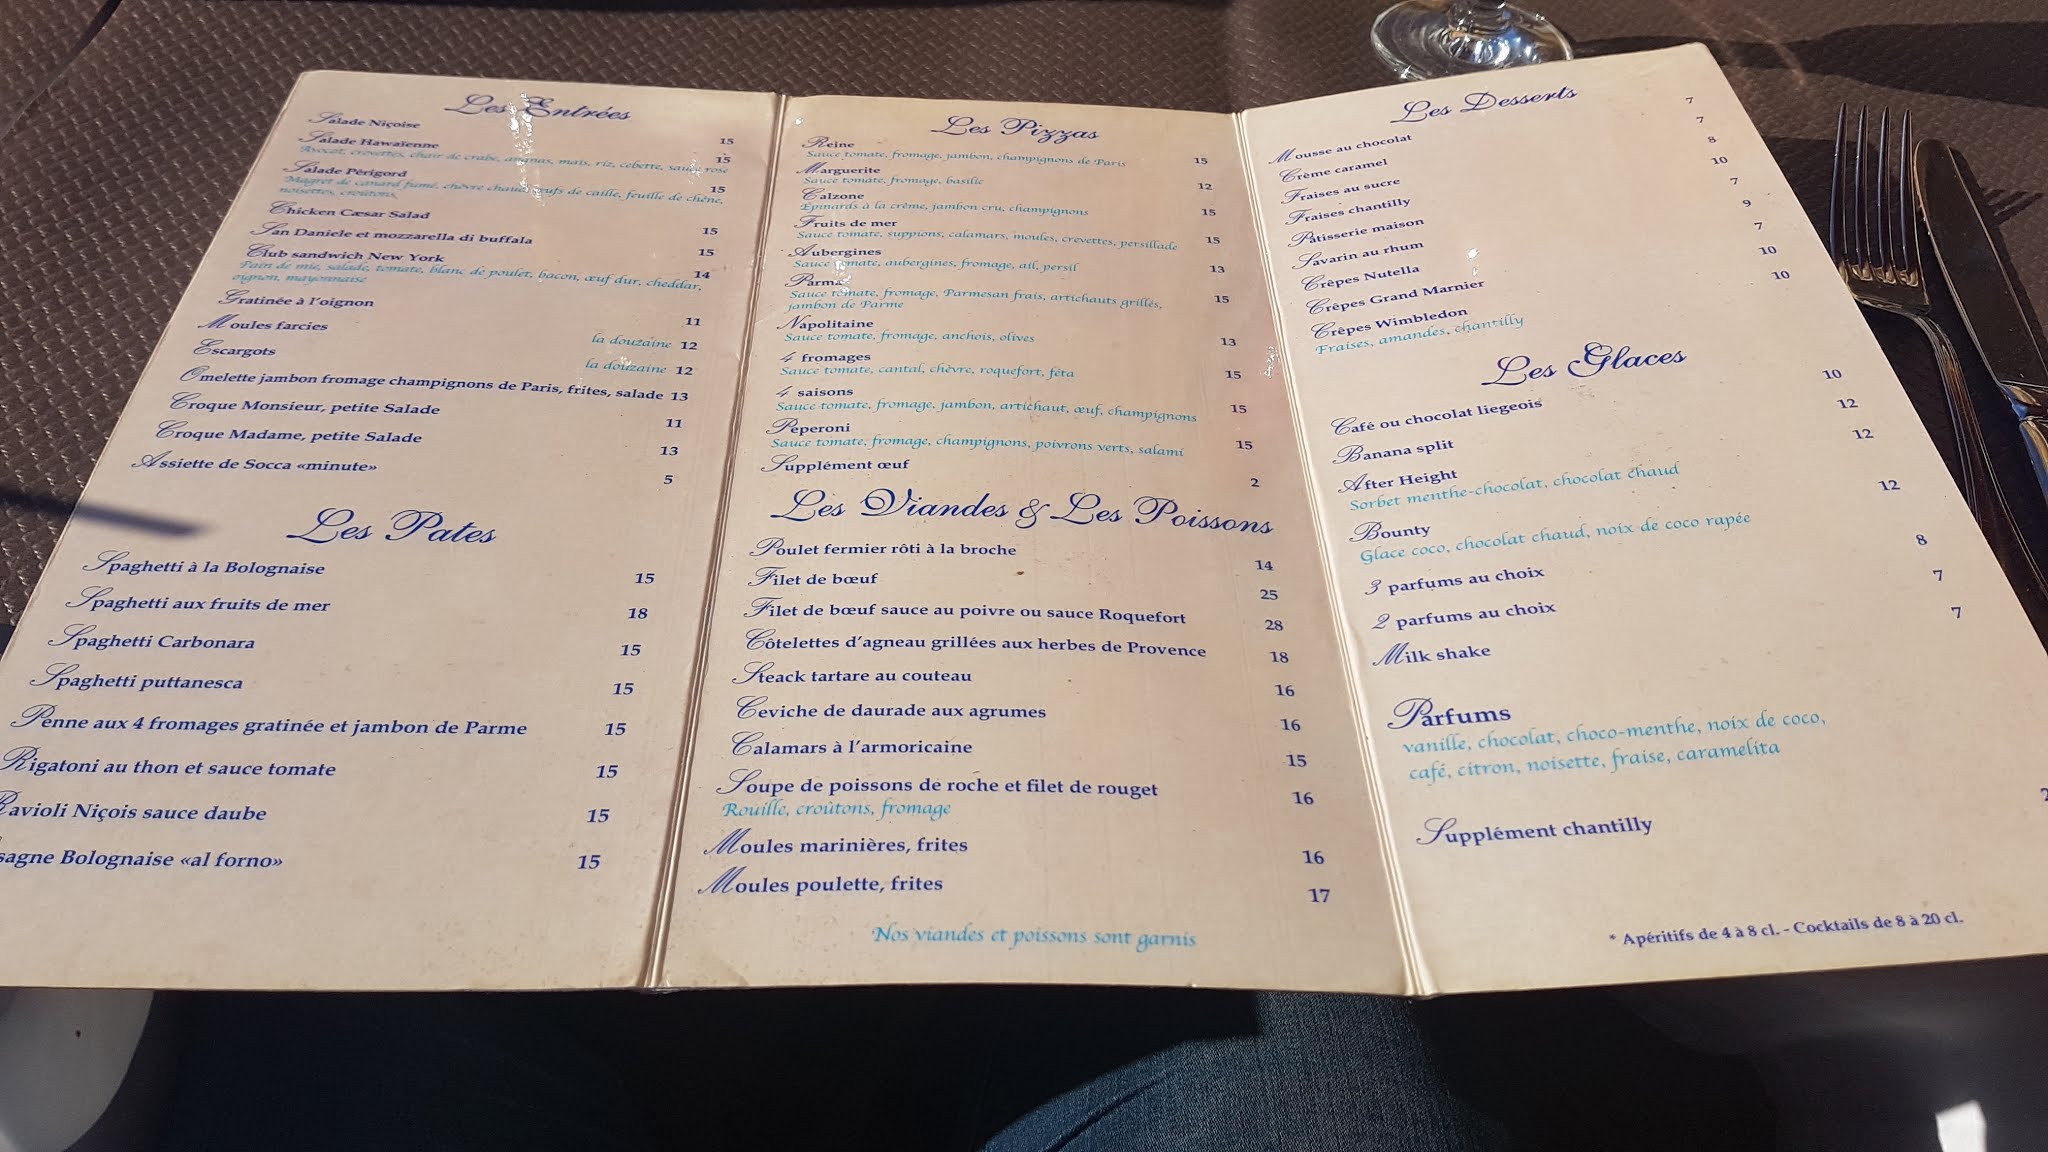 Les Entrées
Salade Niçoise 15
Salade Hawaïenne 15
Avocat, crevettes, chair de crabe, ananas, maïs, riz, cebette, sauce rose
Salade Périgord 15
Magret de canard fumé, chèvre chaud, œufs de caille, feuille de chêne,
noisettes, croûtons,
Chicken Cæsar Salad 15
San Daniele et mozzarella di buffala 15
Club sandwich New York 14
Pain de mie, salade, tomate, blanc de poulet, bacon, œuf dur, cheddar,
oignon, mayonnaise
Gratinée à l'oignon 11
Moules farcies la douzaine 12
Escargots la douzaine 12
Omelette jambon fromage champignons de Paris, frites, salade 13
Croque Monsieur, petite Salade 11
Croque Madame, petite Salade 13
Assiette de Socca «minute» 5
Les Pates
Spaghetti à la Bolognaise 15
Spaghetti aux fruits de mer 18
Spaghetti Carbonara 15
Spaghetti puttanesca 15
Penne aux 4 fromages gratinée et jambon de Parme 15
Rigatoni au thon et sauce tomate 15
Ravioli Niçois sauce daube 15
sagne Bolognaise «al forno» 15
Les Pizzas
Reine 15
Sauce tomate, fromage, jambon, champignons de Paris
Marguerite 12
Sauce tomate, fromage, basilic
Calzone 15
Epinards à la crème, jambon cru, champignons
Fruits de mer 15
Sauce tomate, suppions, calamars, moules, crevettes, persillade
Aubergines 13
Sauce tomate, aubergines, fromage, ail, persil
Parma 15
Sauce tomate, fromage, Parmesan frais, artichauts grillés,
jambon de Parme
Napolitaine 13
Sauce tomate, fromage, anchois, olives
4 fromages 15
Sauce tomate, cantal, chèvre, roquefort, féta
4 saisons 15
Sauce tomate, fromage, jambon, artichaut, œuf, champignons
Peperoni 15
Sauce tomate, fromage, champignons, poivrons verts, salami
Supplément œuf 2
Les Viandes & Les Poissons
Poulet fermier rôti à la broche 14
Filet de bœuf 25
Filet de bœuf sauce au poivre ou sauce Roquefort 28
Côtelettes d'agneau grillées aux herbes de Provence 18
Steack tartare au couteau 16
Ceviche de daurade aux agrumes 16
Calamars à l'armoricaine 15
Soupe de poissons de roche et filet de rouget 16
Rouille, croûtons, fromage
Moules marinières, frites 16
Moules poulette, frites 17
Nos viandes et poissons sont garnis
Les Desserts
Mousse au chocolat 7
Crème caramel 7
Fraises au sucre 8
Fraises chantilly 10
Pâtisserie maison 7
Savarin au rhum 9
Crêpes Nutella 7
Crêpes Grand Marnier 10
Crêpes Wimbledon 10
Fraises, amandes, chantilly
Les Glaces
Café ou chocolat liegeois 10
Banana split 12
After Height 12
Sorbet menthe-chocolat, chocolat chaud
Bounty 12
Glace coco, chocolat chaud, noix de coco rapée
3 parfums au choix 8
2 parfums au choix 7
Milk shake 7
Parfums
vanille, chocolat, choco-menthe, noix de coco,
café, citron, noisette, fraise, caramelita
Supplément chantilly 2
* Apéritifs de 4 à 8 cl. - Cocktails de 8 à 20 cl.